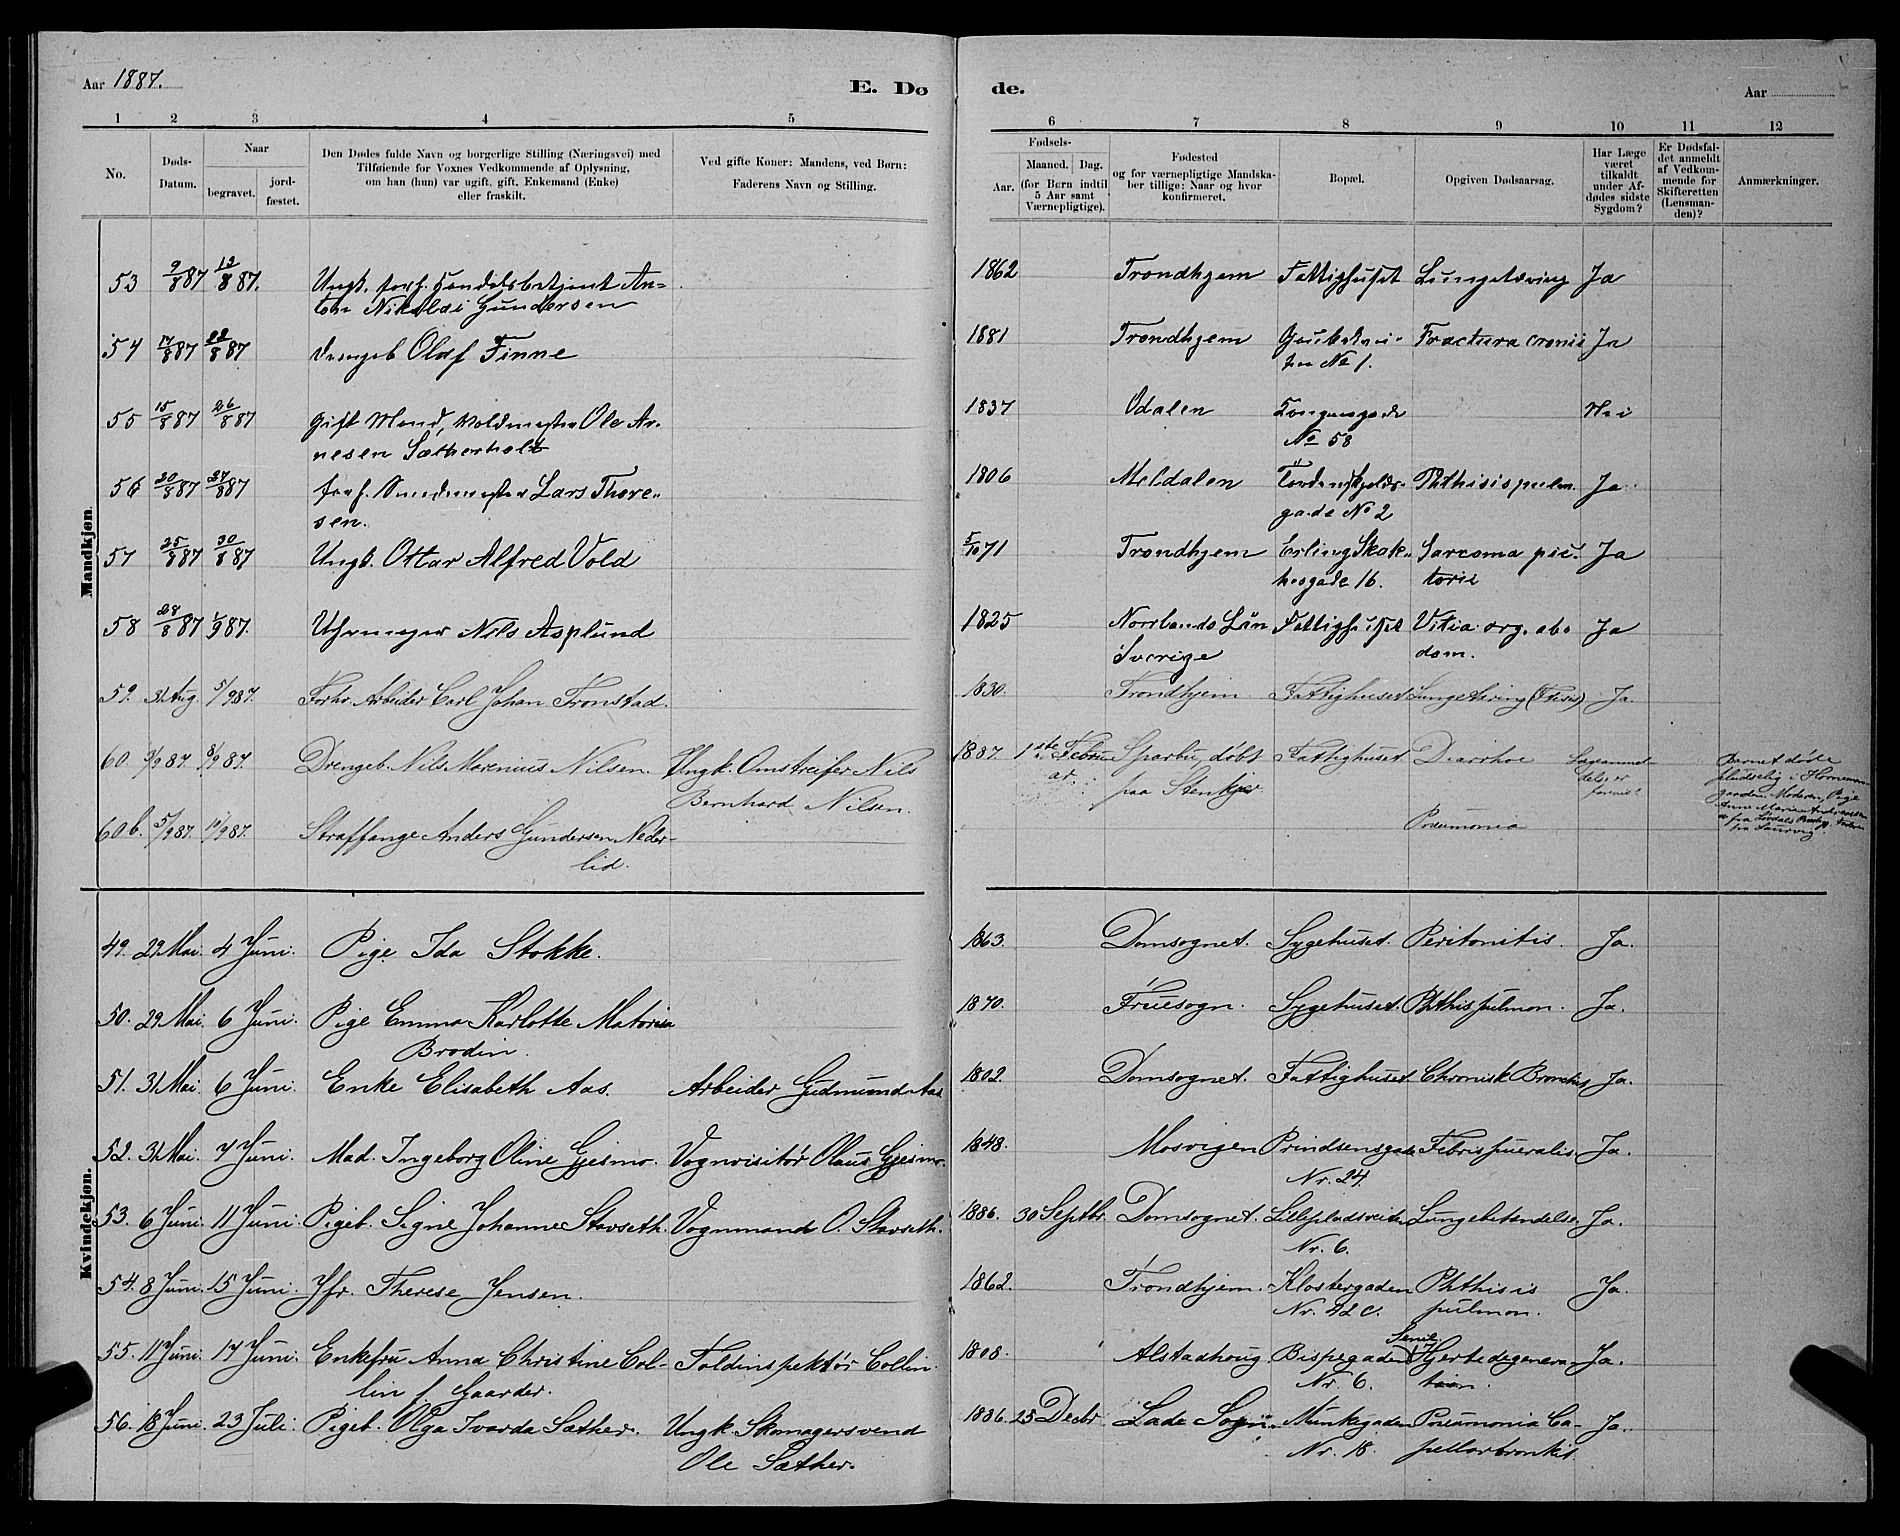 Aar 1887.
E. Dø
de.
Aar
1 2 3 4 5
6 7 8 9 10 11 12
No.
Døds-
Datum.
Naar
begravet.
jord-
fæstet.
Den Dødes fulde Navn og borgerlige Stilling (Næringsvei) med
Tilføiende for Voxnes Vedkommende af Oplysning,
om han (hun) var ugift, gift, Enkemand (Enke)
eller fraskilt.
Ved gifte Koner: Mandens, ved Børn:
Faderens Navn og Stilling.
Fødsels-
Aar.
Maaned. Dag.
(for Børn indtil
5 Aar samt
Værnepligtige).
Fødested
og for værnepligtige Mandska-
ber tillige: Naar og hvor
konfirmeret.
Bopæl.
Opgiven Dødsaarsag.
Har Læge
været
tilkaldt
under Af-
dødes sidste
Sygdom?
Er Dødsfal-
det anmeldt
af Vedkom-
mende for
Skifteretten
(Lensman-
den)?
Anmærkninger.
Mandkjøn.
53 9/8 87 12/8 87. Ungk. forh. Handelsbetjent An- 1862 Trondhjem Fattighuset Lungetæring Ja
ton Nikolai Gundersen
54 17/8 87 22/8 87 Drengeb Olaf Finne 1881 Trondhjem No 1. Fractura cranii Ja
55 15/8 87 26/8 87 gift Mand, Voldmester Ole Ar- 1837 Odalen Kongensgade Nei
nesen Sætherholt No 58
56 20/8 87 27/8 87 forh. Smedmester Lars Thore- 1806 Meldalen Tordenskjolds- Phthisis pulm. Ja
sen. gade No 2
57 25/8 87 30/8 87 Ungk. Ottar Alfred Vold 5/10 71 Trondhjem Erling Skak- Sarcoma pec- Ja
kesgade 16. toris
58 28/8 87 1/9 87. Uhrmager Nils Asplund 1825 Norrlands Län Fattighuset Vitia org. abo Ja
Sverige dom.
59. 31 Aug. 5/9 87. Forhv. Arbeider Carl Johan Tronstad. 1830. Trondhjem. Fattighuset Lungetæring (Ftisis) Ja.
60. 3/9 87. 8/9 87. Drengeb. Nils Marenius Nilsen. Ungk. Omstreifer Nils 1887. 1ste Febru- Sparbu, døbt Fattighuset Diarrhoe
Bernhard Nilsen. ar. paa Stenkjær
Barnet døde
pludselig i
gaarden. Moderen, Pige
Anne Marie
60b. 5/9 87. 10/9 87. Straffange Anders Gundersen Neder- Pneumonia
lid.
Kvindekjøn.
49. 29 Mai. 4 Juni. Pige Ida Stokke. 1863. Domsognet. Sygehuset. Peritonitis. Ja.
50. 29 Mai. 6 Juni. Pige Emma Karlotte 1870. Fruesogn. Sygehuset. Phthis pulmon. Ja.
Brodin.
51. 31 Mai. 6 Juni. Enke Elisabeth Aas. Arbeider Gudmund Aas 1802. Domsognet. Fattighuset. Chronisk Bronchit Ja.
52. 31 Mai. 7 Juni. Mad. Ingeborg Oline Gjesmo. Vognvisitør Olaus Gjesmo. 1848. Mosvigen Prindsensgade Febris pueralis. Ja.
Nr. 24.
53. 6 Juni. 11 Juni. Pigeb. Signe Johanne Stavseth. Vognmand O. Stavseth. 1886. 30 Septbr. Domsognet. Lillepladsveiten Lungebetændelse Ja.
Nr. 6.
54. 8 Juni. 15 Juni. Jfr. Therese Jensen. 1862. Trondhjem. Klostergaden Phthisis Ja.
Nr. 42 c. pulmon.
55. 11 Juni. 17 Juni. Enkefru Anna Christine Col- Toldinspektør Collin. 1808. Alstadhoug Bispegaden Senil Hjertedegenera- Ja.
lin f. Gaarder. Nr. 6. tion.
56. 18 Juni. 23 Juli. Pigeb. Olga Ivarda Sæther. Ungk. Skomagersvend 1886. 25 Decbr Lade Sogn. Munkegaden Pneumonia Ca- Ja.
Ole Sæther. Nr. 18. pillærbronkit.